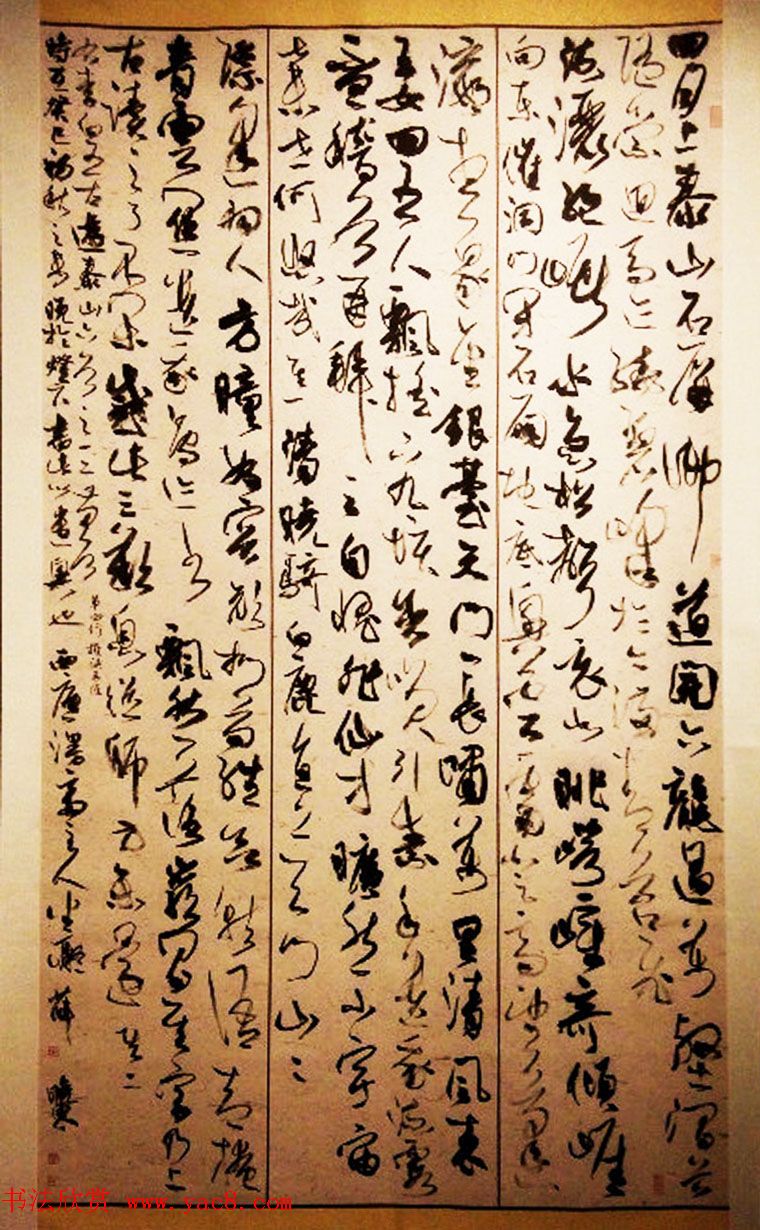 四月上泰山石屏御道開六龍過萬壑澗谷
隨縈迴馬跡繞碧峰於今滿青苔飛
流灑絕巘水急松聲哀北眺崿嶂奇傾崖
向東摧洞門閉石扇地底興雲雷登高望蓬
瀛想象金銀臺天門一長嘯萬里清風來
玉女四五人飄颻下九垓含笑引素手遺我流霞
盃稽首再拜之自愧非仙才曠然小宇宙
棄世何悠哉其一清曉騎白鹿直上天門山山
際逢羽人方瞳好容顏捫蘿欲就語却掩
青雲關遺我鳥跡書飄然落巖間其字乃上
古讀之了不閑感此三歎息從師方未還其二
右書白五古遊泰山六首之一二兩首
時在癸巳初秋之夜晚於燈下書此以遣興也 齋主人 薛
书法欣赏 www.yac8.com